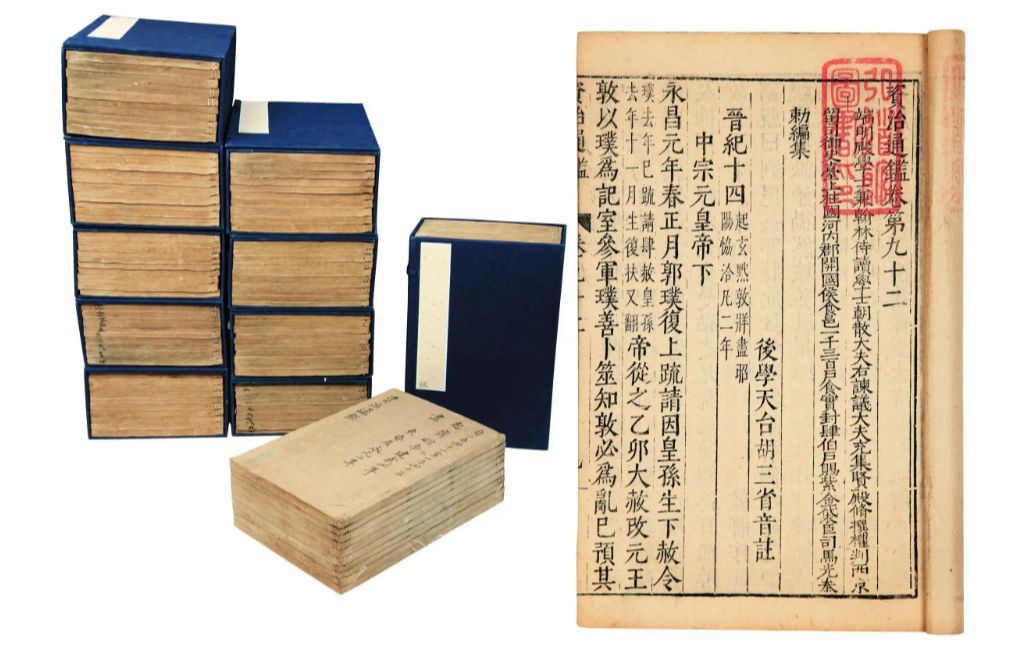 資治通鑑卷第九十二
端明殿學士兼翰林侍讀學士朝散大夫右諫議大夫充集賢殿修撰權判西京
留司御史臺上柱國河內郡開國侯食邑一千三百戶食實封肆伯戶賜紫金魚袋臣司馬光奉
勅編集
後學天台胡三省音註
晉紀十四起玄黓敦牂盡昭陽協洽凡二年
中宗元皇帝下
永昌元年春正月郭璞復上疏請因皇孫生下赦令
璞去年已疏請肆赦皇孫去年十一月生復扶又翻帝從之乙卯大赦改元王
敦以璞爲記室參軍璞善卜筮知敦必爲亂已預其
資治通鑑
弘道館圖書印